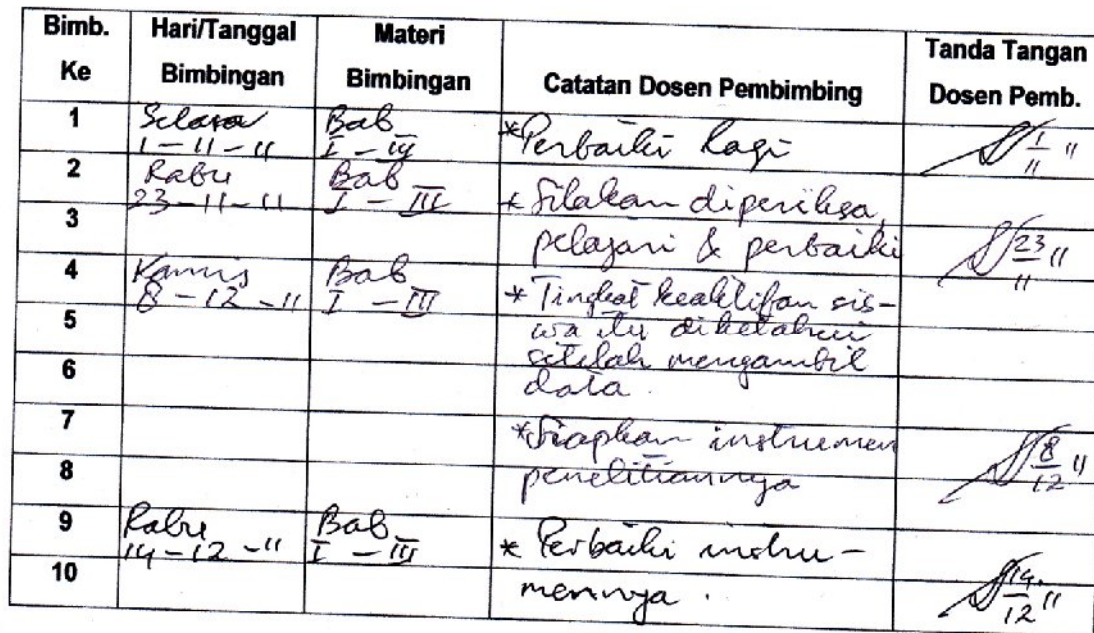 Bimb. Ke Hari/Tanggal Bimbingan Materi Bimbingan Catatan Dosen Pembimbing Tanda Tangan Dosen Pemb.
1 Selasa Bab *Perbaiki lagi
1-11-11 I - III 1/11 11
2 Rabu Bab
23-11-11 I - III * Silakan diperiksa,
3 pelajari & perbaiki 23/11 11
4 Kamis Bab
8-12-11 I - III * Tingkat keaktifan sis-
5 wa itu diketahui
setelah mengambil
6 data.
7 *Siapkan instrumen
8 penelitiannya 8/12 11
9 Rabu Bab
14-12-11 I - III * Perbaiki instru-
10 mennya. 14/12 11